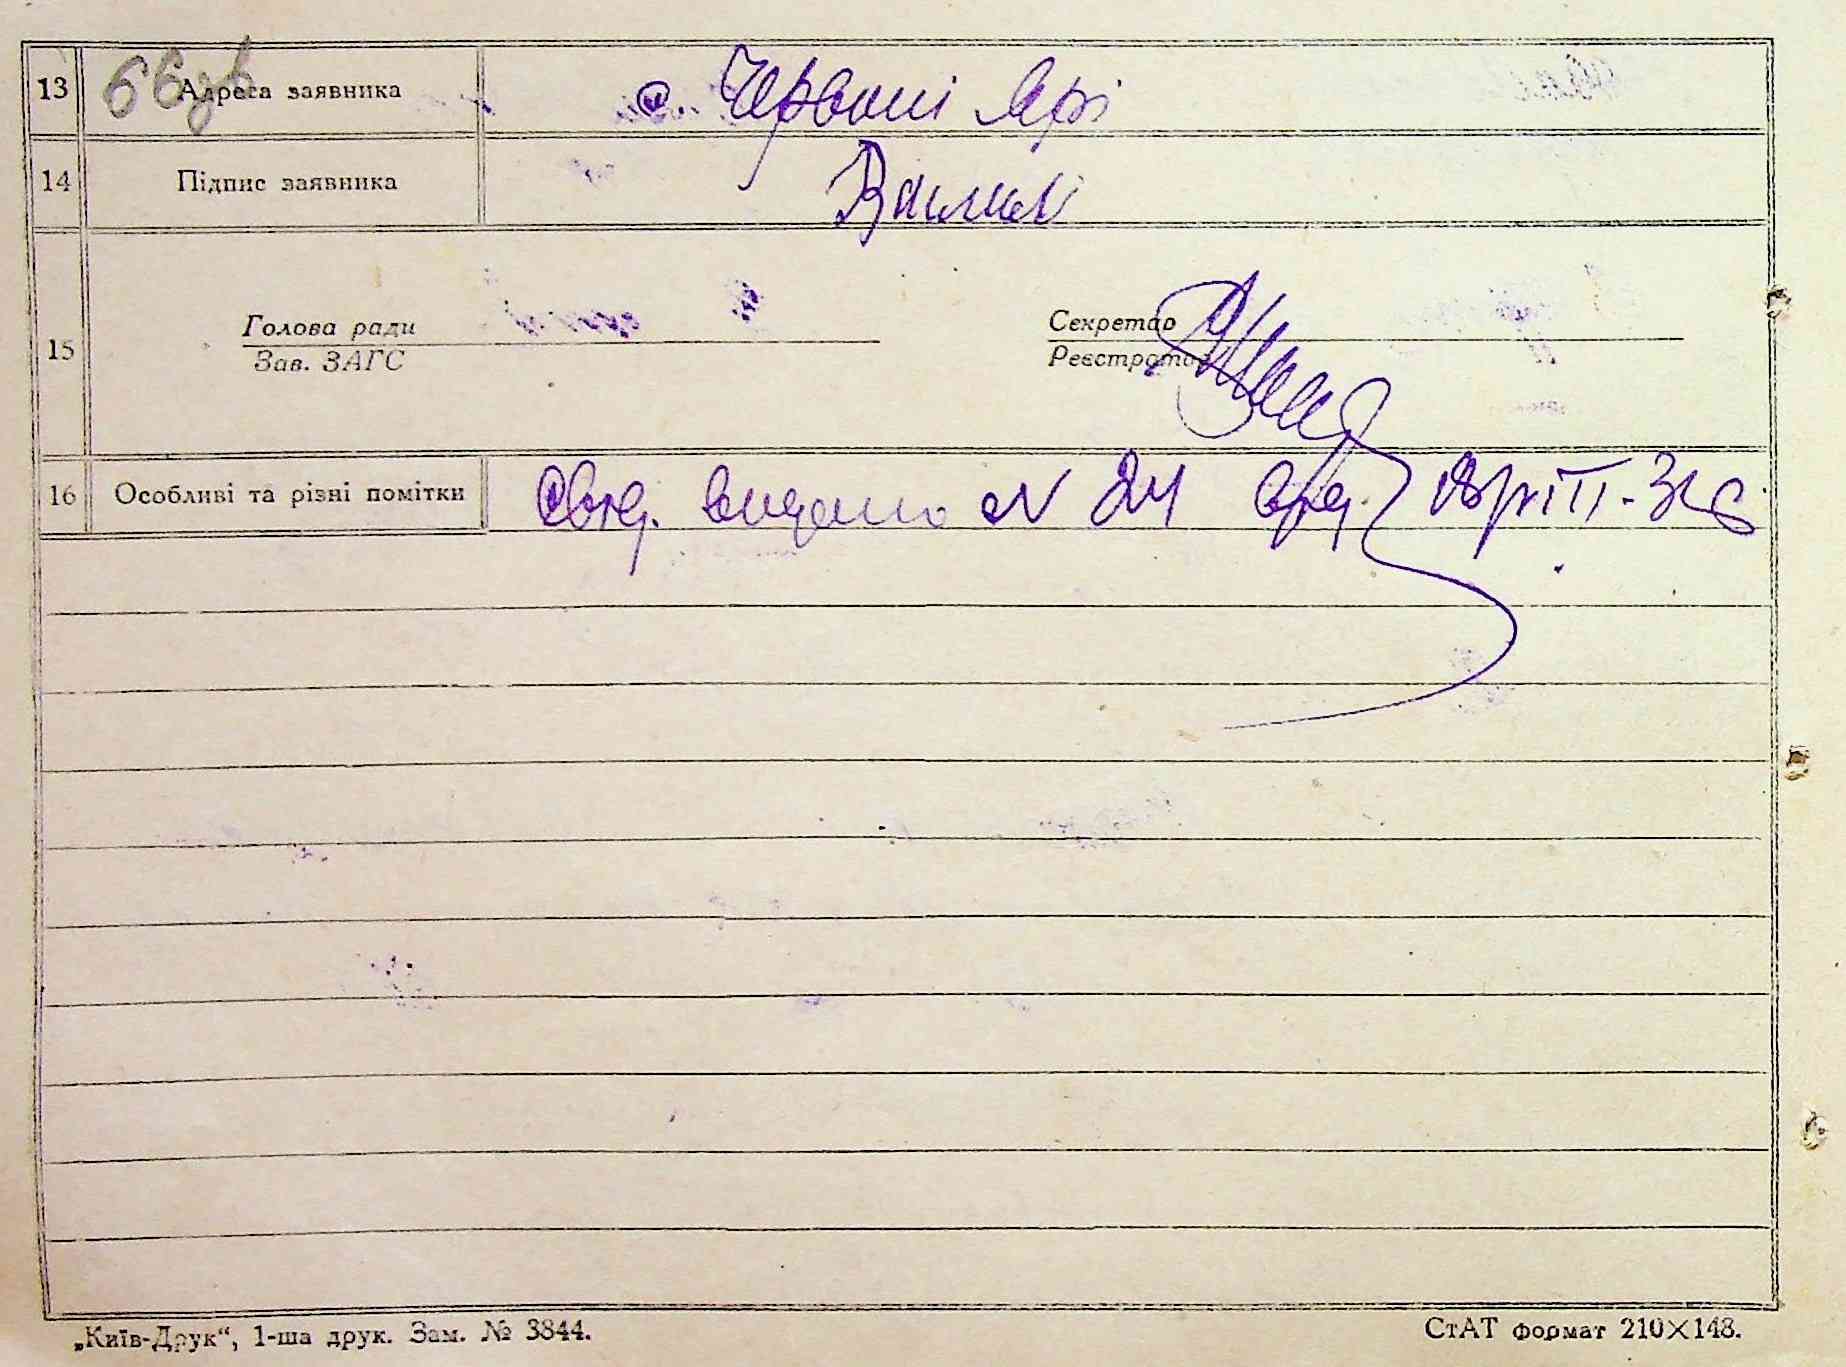 66зв
13 Адреса заявника с. Червоні Яри
14 Підпис заявника
15 Голова ради Секретар
Зав. ЗАГС Реєстратор
16 Особливі та різні помітки Свід. видано N 24
„Київ-Друк“, 1-ша друк. Зам. № 3844. СтАТ формат 210×148.